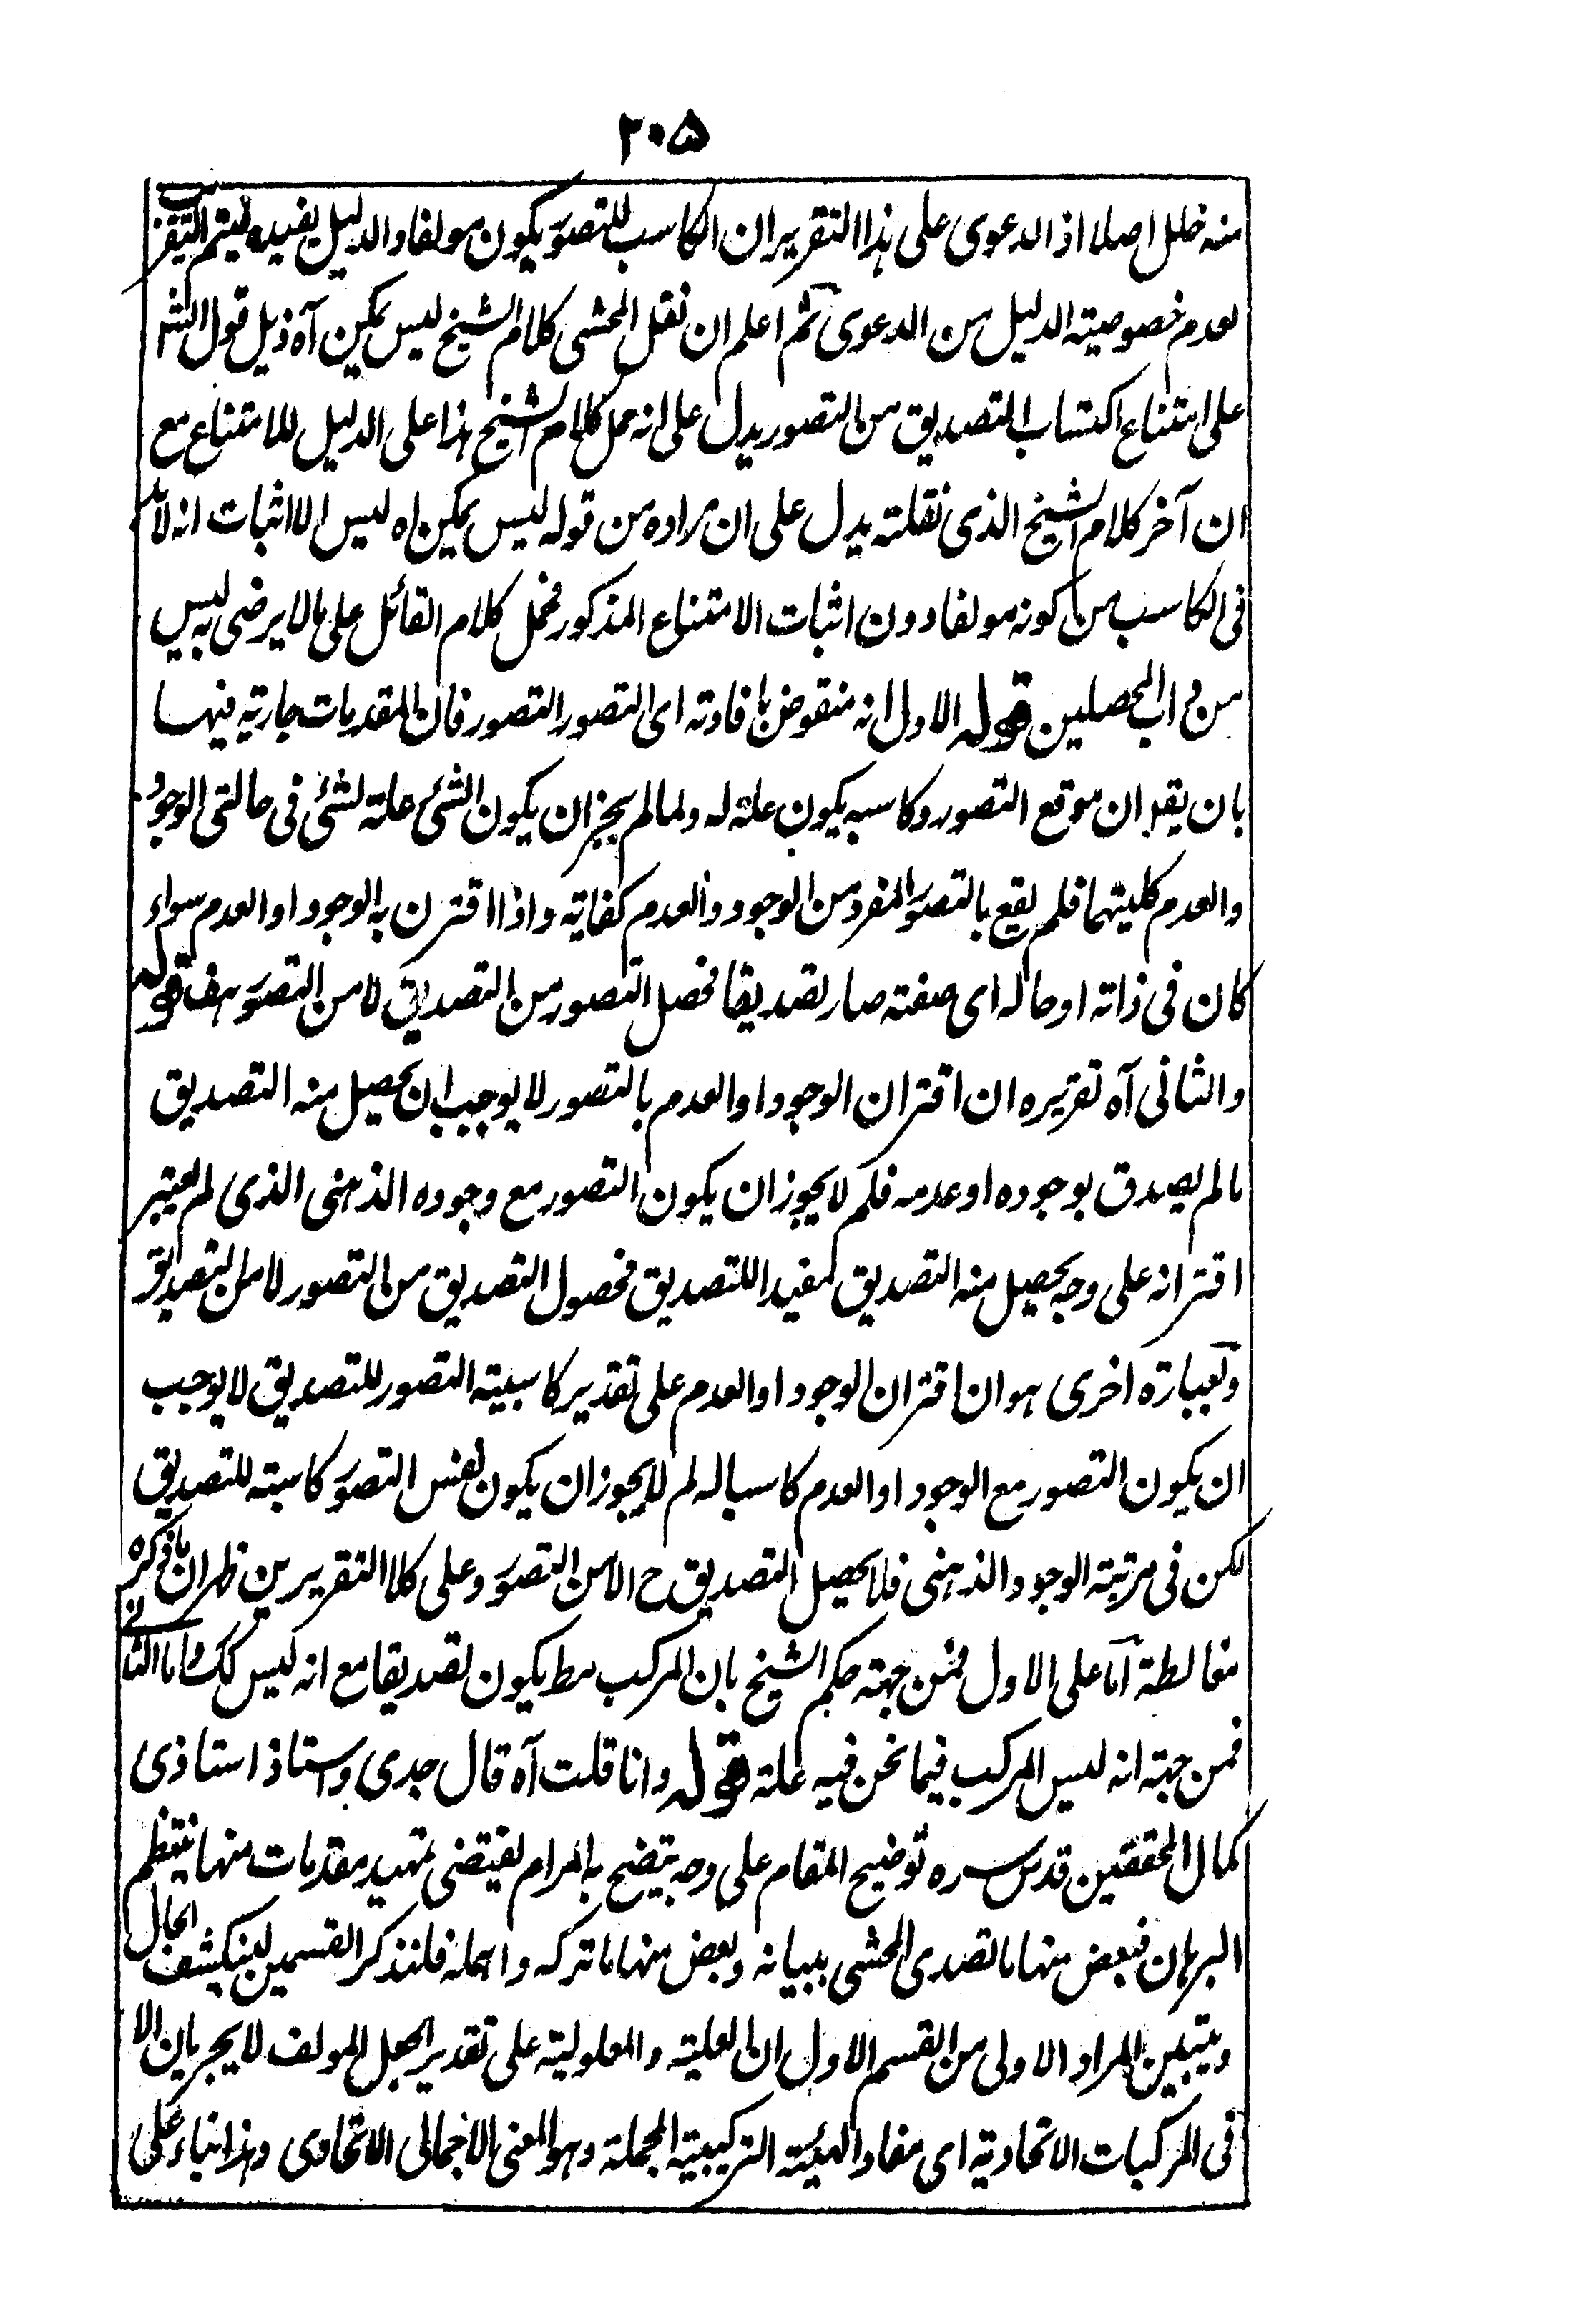 ٢٠٥
منه خلل اصلا اذ الدعوى على هذا التقرير ان الكاسب للتصور يكون مولفا والدليل يفيده فيتم التقريب
لعدم خصوصية الدليل من الدعوى ثم اعلم ان نقل المحشى كلام الشيخ ليس يمكن آه ذيل قول الش
على امتناع اكتساب التصديق من التصور يدل على انه حمل كلام الشيخ هذا على الدليل للامتناع مع
ان آخر كلام الشيخ الذى نقلته يدل على ان مراده من قوله ليس يمكن اه ليس الا اثبات انه لابد
فى الكاسب من كونه مولفا دون اثبات الامتناع المذكور فحمل كلام القائل على ما لا يرضى به ليس
من داب المحصلين قوله الاول انه منقوض بافادته اى التصور التصور فان المقدمات جارية فيها
بان يقر ان موقع التصور وكاسبه يكون علة له ولما لم يجز ان يكون الشئ علة لشئ فى حالتى الوجود
والعدم كليتهما فلم يقع بالتصور المفرد من الوجود والعدم كفاية واذا اقترن به الوجود او العدم سواء
كان فى ذاته او حاله اى صفته صار تصديقا فحصل التصور من التصديق لا من التصور هف قوله
والثانى آه تقريره ان اقتران الوجود او العدم بالتصور لا يوجب ان يحصل منه التصديق
ما لم يصدق بوجوده او عدمه فلم لا يجوز ان يكون التصور مع وجوده الذهنى الذى لم يعتبر
اقترانه على وجه يحصل منه التصديق مفيدا للتصديق فحصول التصديق من التصور لا من التصديق
وبعبارة اخرى هو ان اقتران الوجود او العدم على تقدير كاسبية التصور للتصديق لا يوجب
ان يكون التصور مع الوجود او العدم كاسبا له لم لا يجوز ان يكون نفس التصور كاسبة للتصديق
لكن فى مرتبة الوجود الذهنى فلا يحصل التصديق ح الا من التصور وعلى كلا التقريرين ظهر ان ما ذكره
مغالطة اما على الاول فمن جهة حكم الشيخ بان المركب مط يكون تصديقا مع انه ليس كك واما الثانى
فمن جهة انه ليس المركب فيما نحن فيه علة قوله وانا قلت آه قال جدى واستاذ استاذى
كمال المحققين قدس سره توضيح المقام على وجه يتضح به المرام يقتضى تمهيد مقدمات منها ينتظم
البرهان فبعض منها ما تصدى المحشى ببيانه وبعض منها ما تركه واهمله فلنذكر القسمين لينكشف الحال
ويتبين المراد الاولى من القسم الاول ان العلية والمعلولية على تقدير الجعل المولف لا يجريان الا
فى المركبات الاتحادية اى مفاد الهيئة التركيبية المجملة وهو المعنى الاجمالى الاتحادى وهذا بناء على